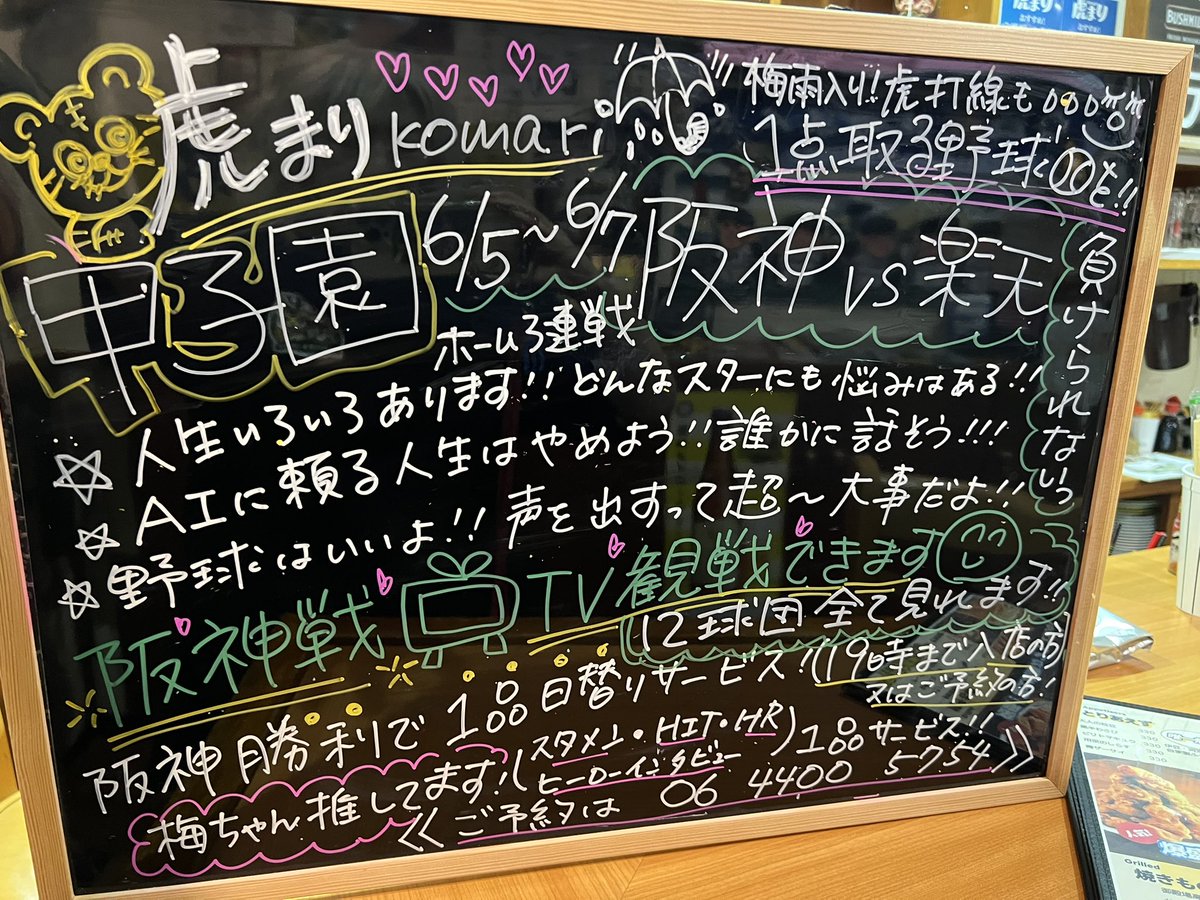 虎まり komari
梅雨入り!!虎打線も
1点取る野球を!!
甲子園 6/5〜6/7 阪神 vs 楽天
ホーム3連戦
負けられないっ
☆人生いろいろあります!!どんなスターにも悩みはある!!
☆AIに頼る人生はやめよう!!誰かに話そう!!!
☆野球はいいよ!!声を出すって超〜大事だよ!!
阪神戦 TV観戦できます
12球団全て見れます!!
阪神勝利で1品日替りサービス!(19時まで入店の方
又はご予約の方!
梅ちゃん推してます!(スタメン・HIT・HR
ヒーローインタビュー)1品サービス!!
《ご予約は 06 4400 5754》
とりあえず
Grilled
焼きもの